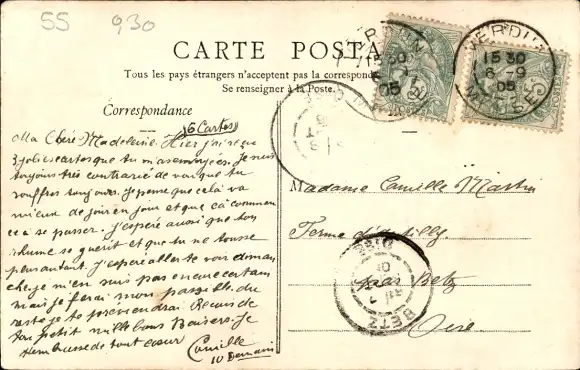 55 930
CARTE POSTA
Tous les pays étrangers n'acceptent pas la correspond
Se renseigner à la Poste.
Correspondance
(6 Cartes)
Ma Chère Madeleine. Hier j'ai reçu
3 jolies cartes que tu m'as envoyées. Je suis
toujours très contrarié de voir que tu
souffres toujours. Je pense que cela va
mieux de jour en jour et que ça commen
ce à se passer. J'espère aussi que ton
rhume se guérit et que tu ne tousse
plus autant. J'espère aller te voir diman
che je n'en suis pas encore certain
mais je ferai mon possible du
reste je te préviendrai. Reçois de
ton petit mille bons Baisers. Je
t'embrasse de tout cœur
Camille
10 Demain
Madame Camille Martin
Ferme d'
par Betz
Oise
VERDUN
15 30
6 - 9
05
MEUSE
VERDUN
05
BETZ
OISE